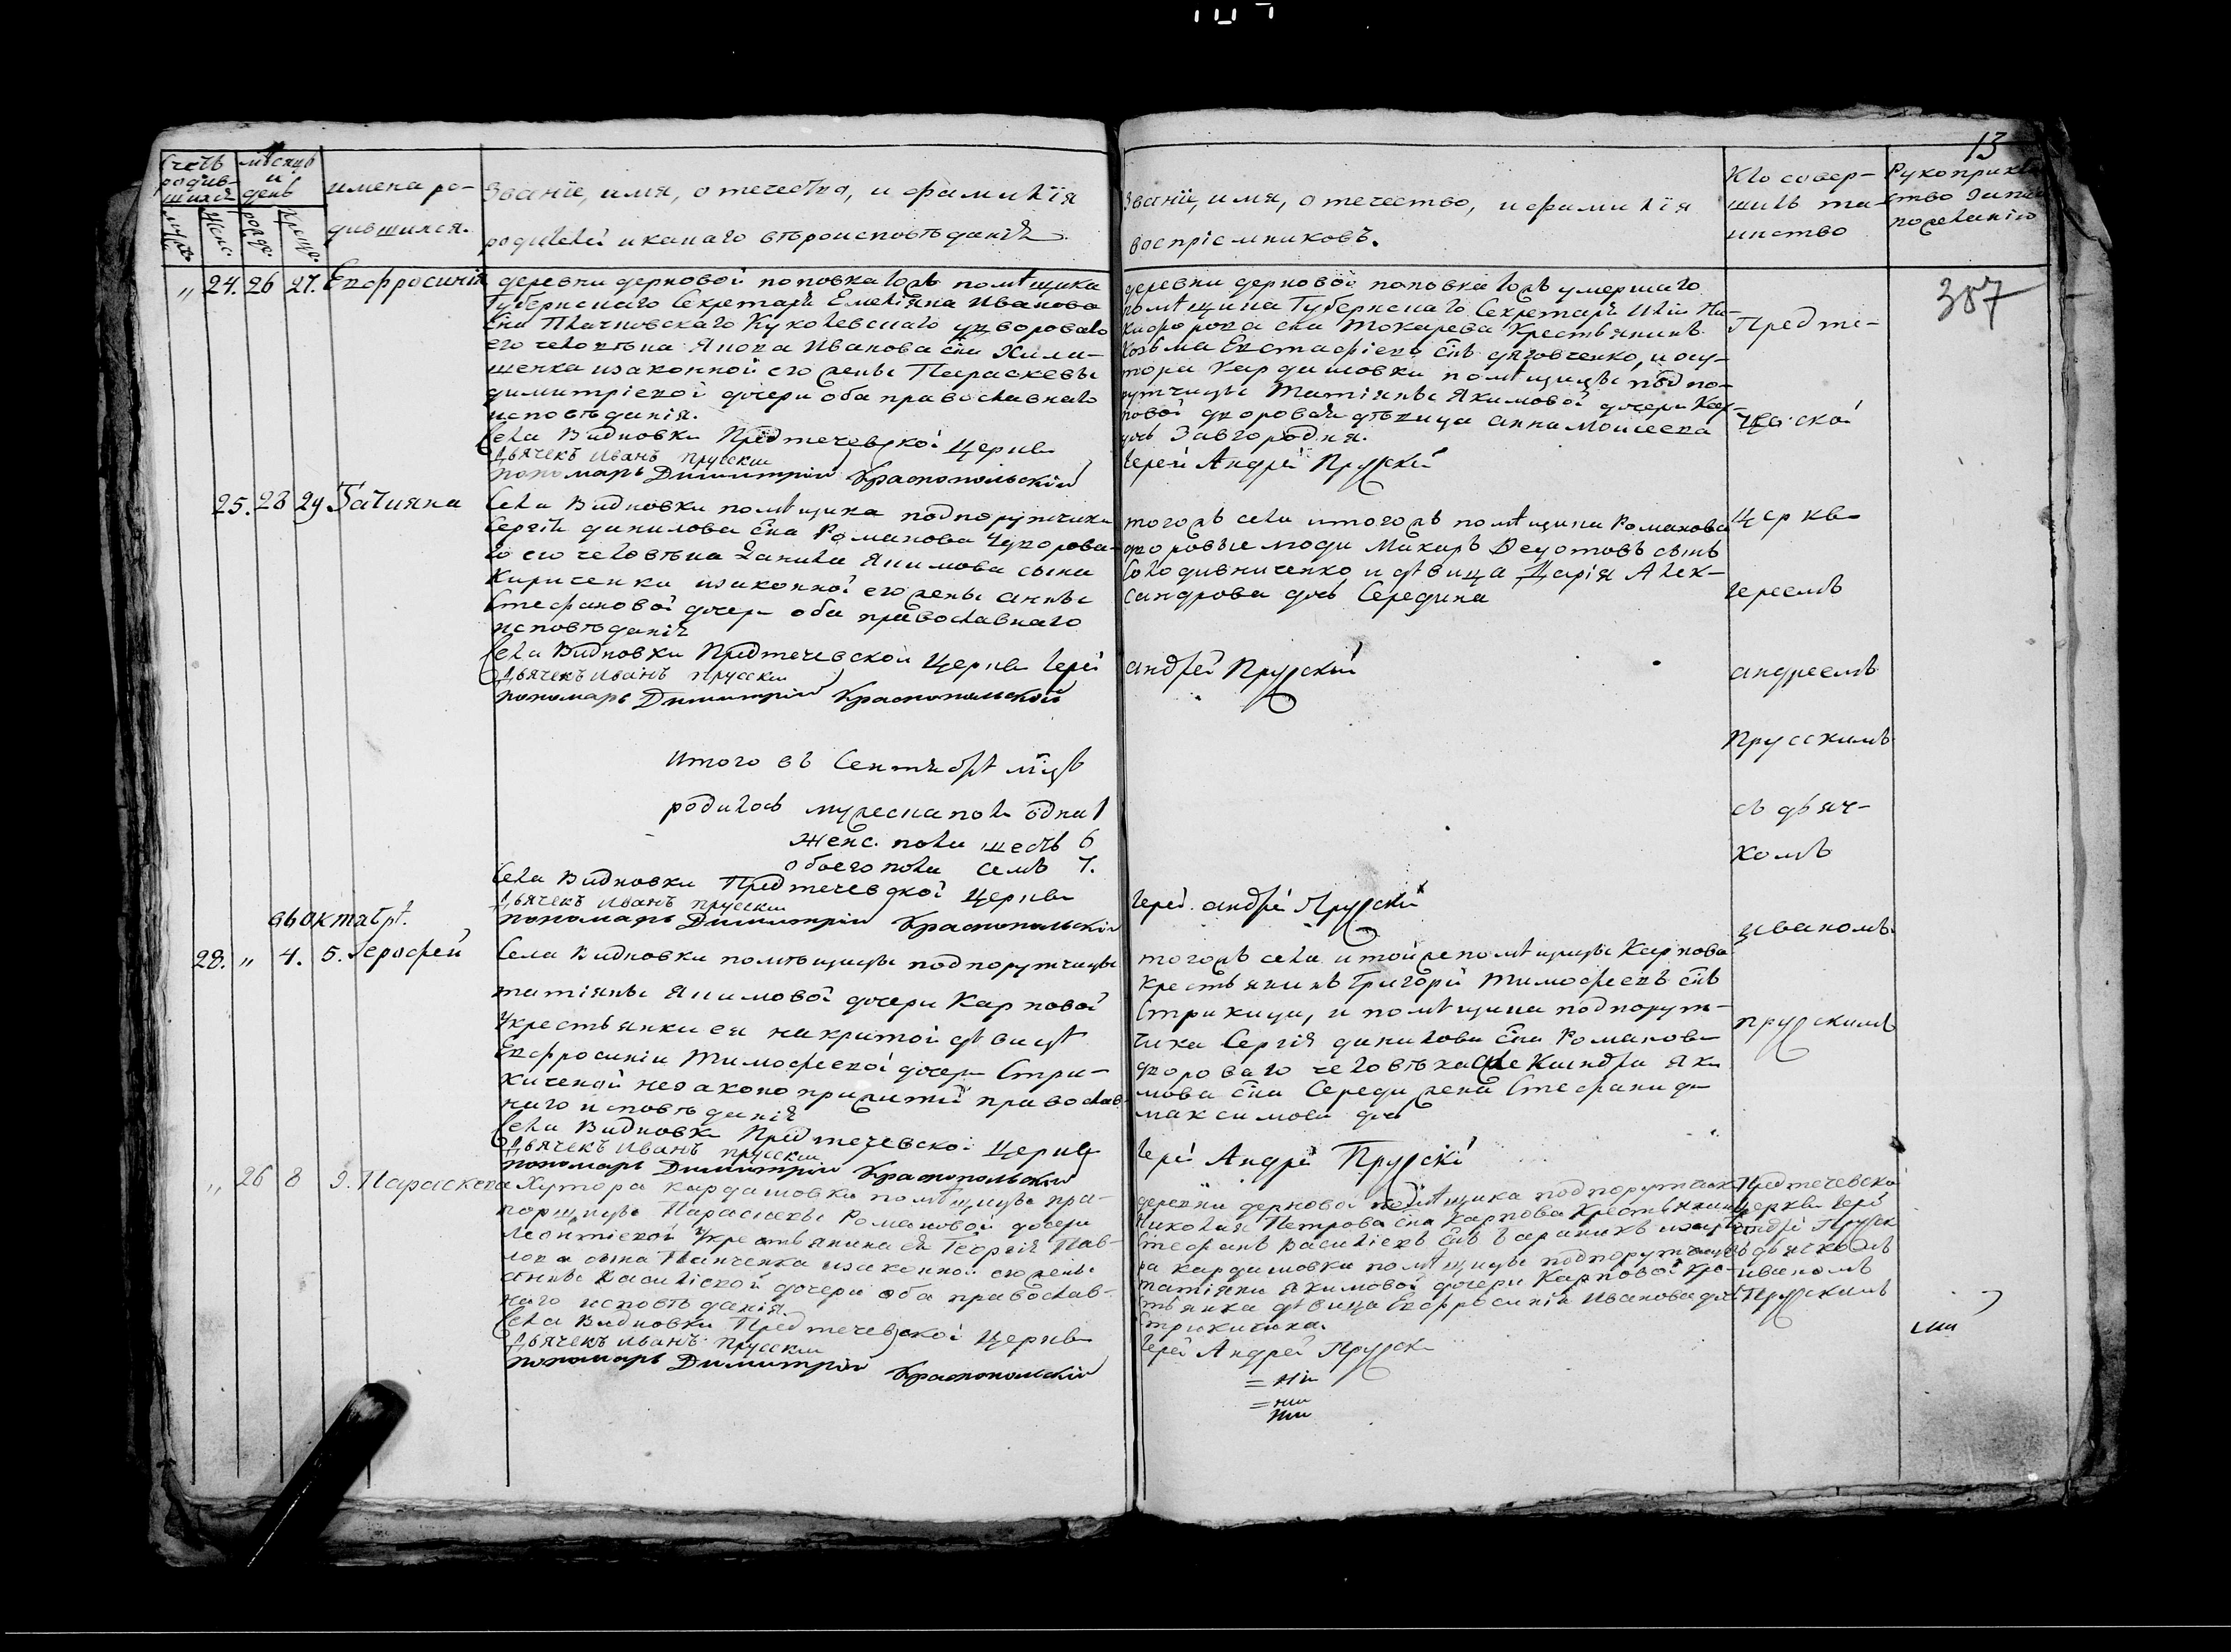 13
Счетъ родив-шихся
мѣсяцъ и день
имена ро-
дившихся.
Званїе, имя, отечество, и фамилїя
родителей и какаго вѣроисповѣданїя
Званїе, имя, отечество, и фамилїя
воспрiемниковъ.
Кто совер-
шилъ та-
инство
307
муж.
женс.
рожд.
крещ.
" 24. 26 27. Евфросинія
деревни дерновой поповка тожъ помѣщика
Губернскаго Секретаря Емелїяна Иванова
его человѣка Якова Иванова сна
шенка изаконной его жены Параскевы
димитрїевой дочери оба православнаго
исповѣданія.
Села Видновки Предтечевской Церкви
Дьячекъ Иванъ Прусский
пономарь Димитрій Краснопольскій
деревни дерновой поповка тожъ умершаго
помѣщика Губернскаго Секретаря Иліи Ни-
кифорова сна Токарева Крестьянинъ
Козьма Евстафіевъ снъ и ху-
тора Кардашовки помѣщицы подпо-
ручицы Татіяны Якимовой дочери Кар-
повой дворовая дѣвица анна Моисеева
дочь Завгородня.
Іерей Андрей Прускій
Предте-
ческой
25. 28 29 Татияна
Села Видновки помѣщика подпорутчика
Сергія данилова сна Романова Удворова-
го его человѣка данила Якимова сына
Кириченка изаконной его жены анны
Стефановой дочери оба православнаго
исповѣданія
Села Видновки Предтечевской Церкви Іерей
Дьячекъ Иванъ прусский
пономарь Димитрій Краснопольской
тогожъ села итогожъ помѣщика Романова
дворовые люди Макаръ сынъ
и дѣвица Дарія Алек-
сандрова дочь Середина
андрей Прускій
Церкви
Іереемъ
андреемъ
Прусскимъ
съ дьяч-
комъ
иваномъ
прусскимъ
Итого въ Сентябрѣ мцѣ
родилось мужеска пола одна 1
женс. пола шесть 6
обоего пола семь 7.
Села Видновки Предтечевской Церкви
Дьячекъ Иванъ прусский
пономарь Димитрій Краснопольскій
Іерей андрей Прускій
въ октябрѣ.
28. " 4. 5. Іерофей
Села Видновки помѣщицы подпорутчицы
татіяны Якимовой дочери Карповой
Укрестьянки ея накритой дѣвицѣ
Евфросиніи Тимофеевой дочери Стри-
жичекой незаконо прижитый православ-
наго исповѣданія
Села Видновки Предтечевской Церкви
Дьячекъ Иванъ прусский
пономарь Димитрій Краснопольскій
тогожъ села итойже помѣщицы Карповой
Крестьянинъ Григорій Тимофеевъ снъ
и помѣщика подпорут-
чика Сергія данилова сна Романова
двороваго человѣка Александра Яки
мова сна Середи жена Стефанида
максимова дочь
Іерей Андрей Прускі
" 26 8 9. Параскева
Хутора кардашовки помѣщицы пра-
порщицы Параскевы Романовой дочери
Леонтіевой Укрестьянина ея Георгія Пав-
лова сына Панченка изаконной его жены
анны Василіевой дочери оба православ-
наго исповѣданія.
Села Видновки Предтечевской Церкви
Дьячекъ Иванъ прусский
пономарь Димитрій Краснопольскій
деревни дерновой помѣщика подпорутчика
Николая Петрова сна Карпова Крестьянинъ
Стефанъ Василіевъ снъ
ра кардашовки помѣщицы подпорутчицы
татіяны якимовой дочери Карповой Кре-
стьянка дѣвица Евфросинія Иванова дочь
Іерей Андрей Пруск
Предтечевской
Церкви Іерей
андрей Прускі
дьячкомъ
иваномъ
Прускимъ